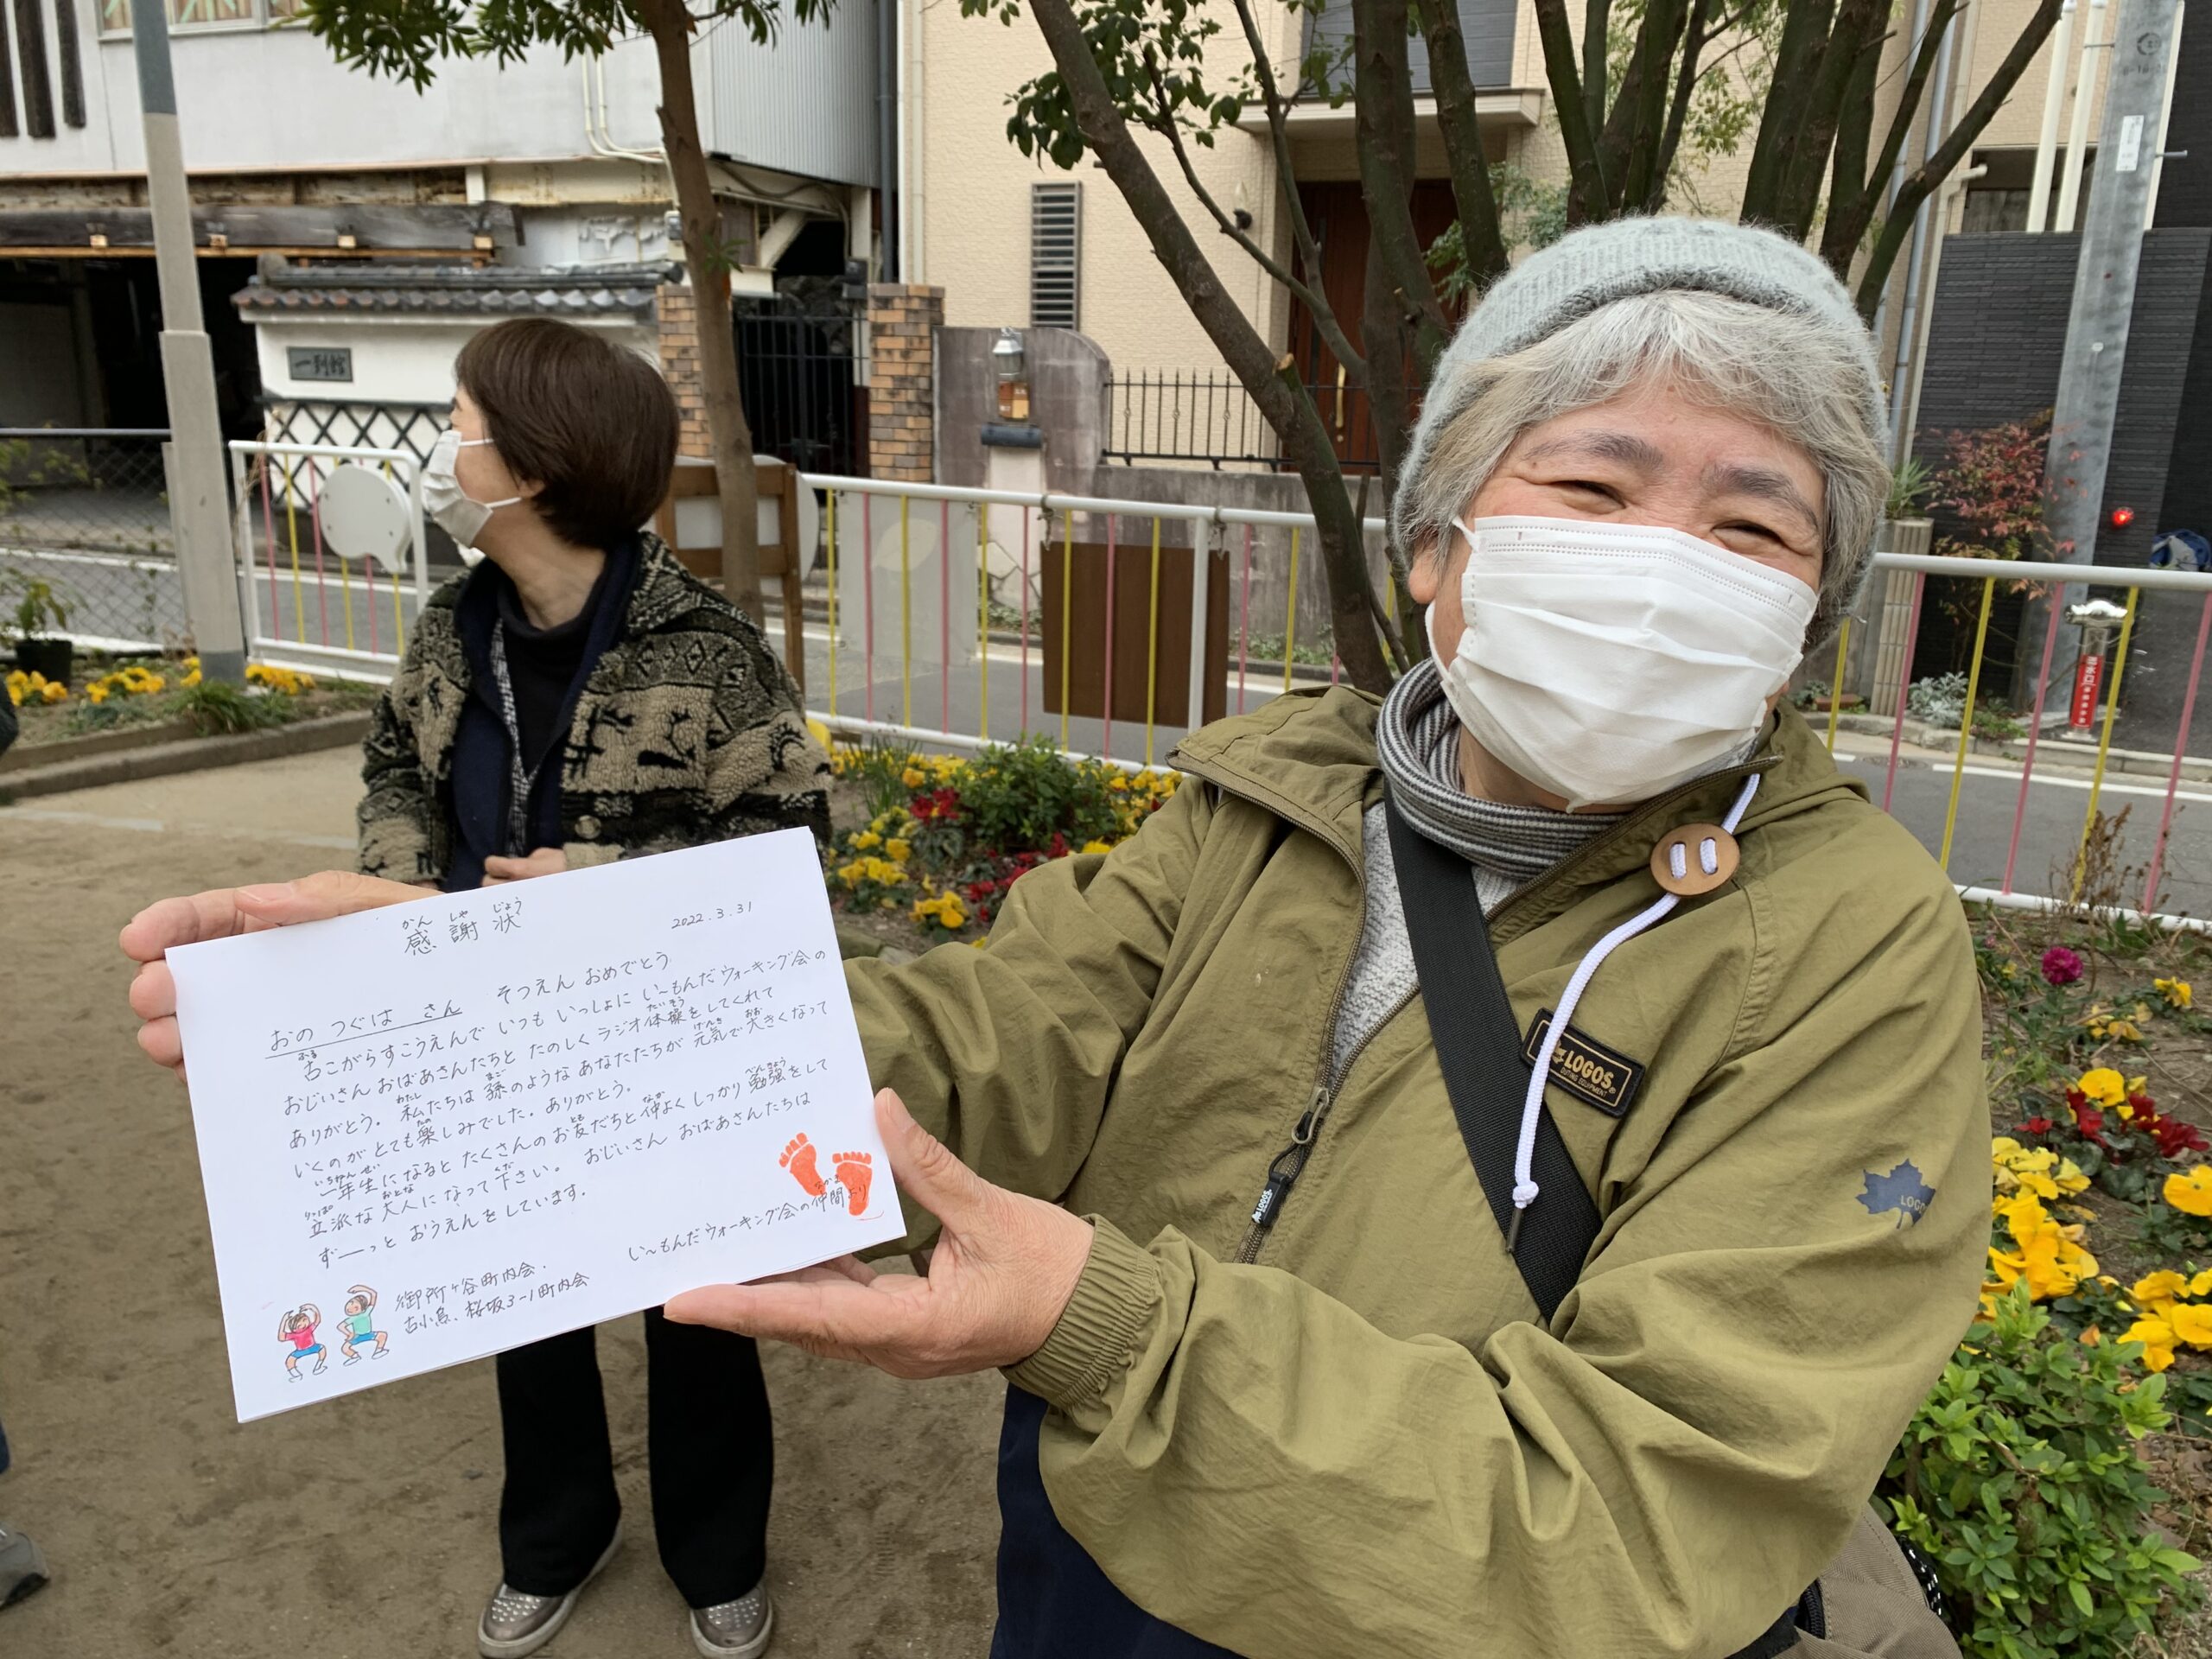 一到館
かん しゃ じょう
感謝状
2022.3.31
おの つぐは さん そつえん おめでとう
古こがらすこうえんで いつも いっしょに い〜もんだウォーキング会の
おじいさん おばあさんたちと たのしく ラジオ体操をしてくれて
ありがとう。 私たちは 孫のような あなたたちが 元気で大きくなって
いくのが とても楽しみでした。ありがとう。
一年生になると たくさんのお友だちと 仲よく しっかり 勉強をして
立派な大人になって下さい。 おじいさん おばあさんたちは
ず——っと おうえんをしています。
い〜もんだウォーキング会の仲間より
御所ヶ谷町内会.
古小烏、桜坂3-1町内会
LOGOS
LOGOS